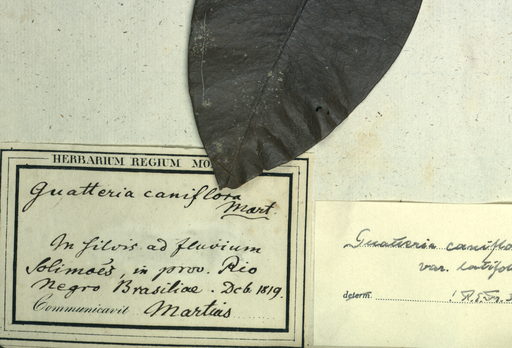 HERBARIUM REGIUM MO
Guatteria caniflora
Mart.
In silvis ad fluvium
Solimoës, in prov. Rio
Negro Brasiliae. Dcb. 1819.
Communicavit Martius
Guatteria caniflo
var. latifol
determ.